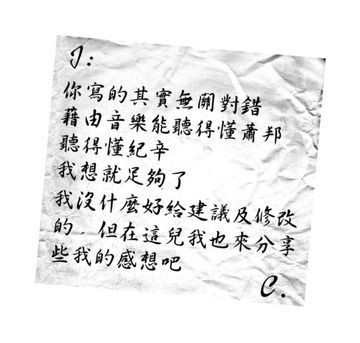 J:
你寫的其實無關對錯
藉由音樂能聽得懂蕭邦
聽得懂紀辛
我想就足夠了
我沒什麼好給建議及修改
的．但在這兒我也來分享
些我的感想吧
C.